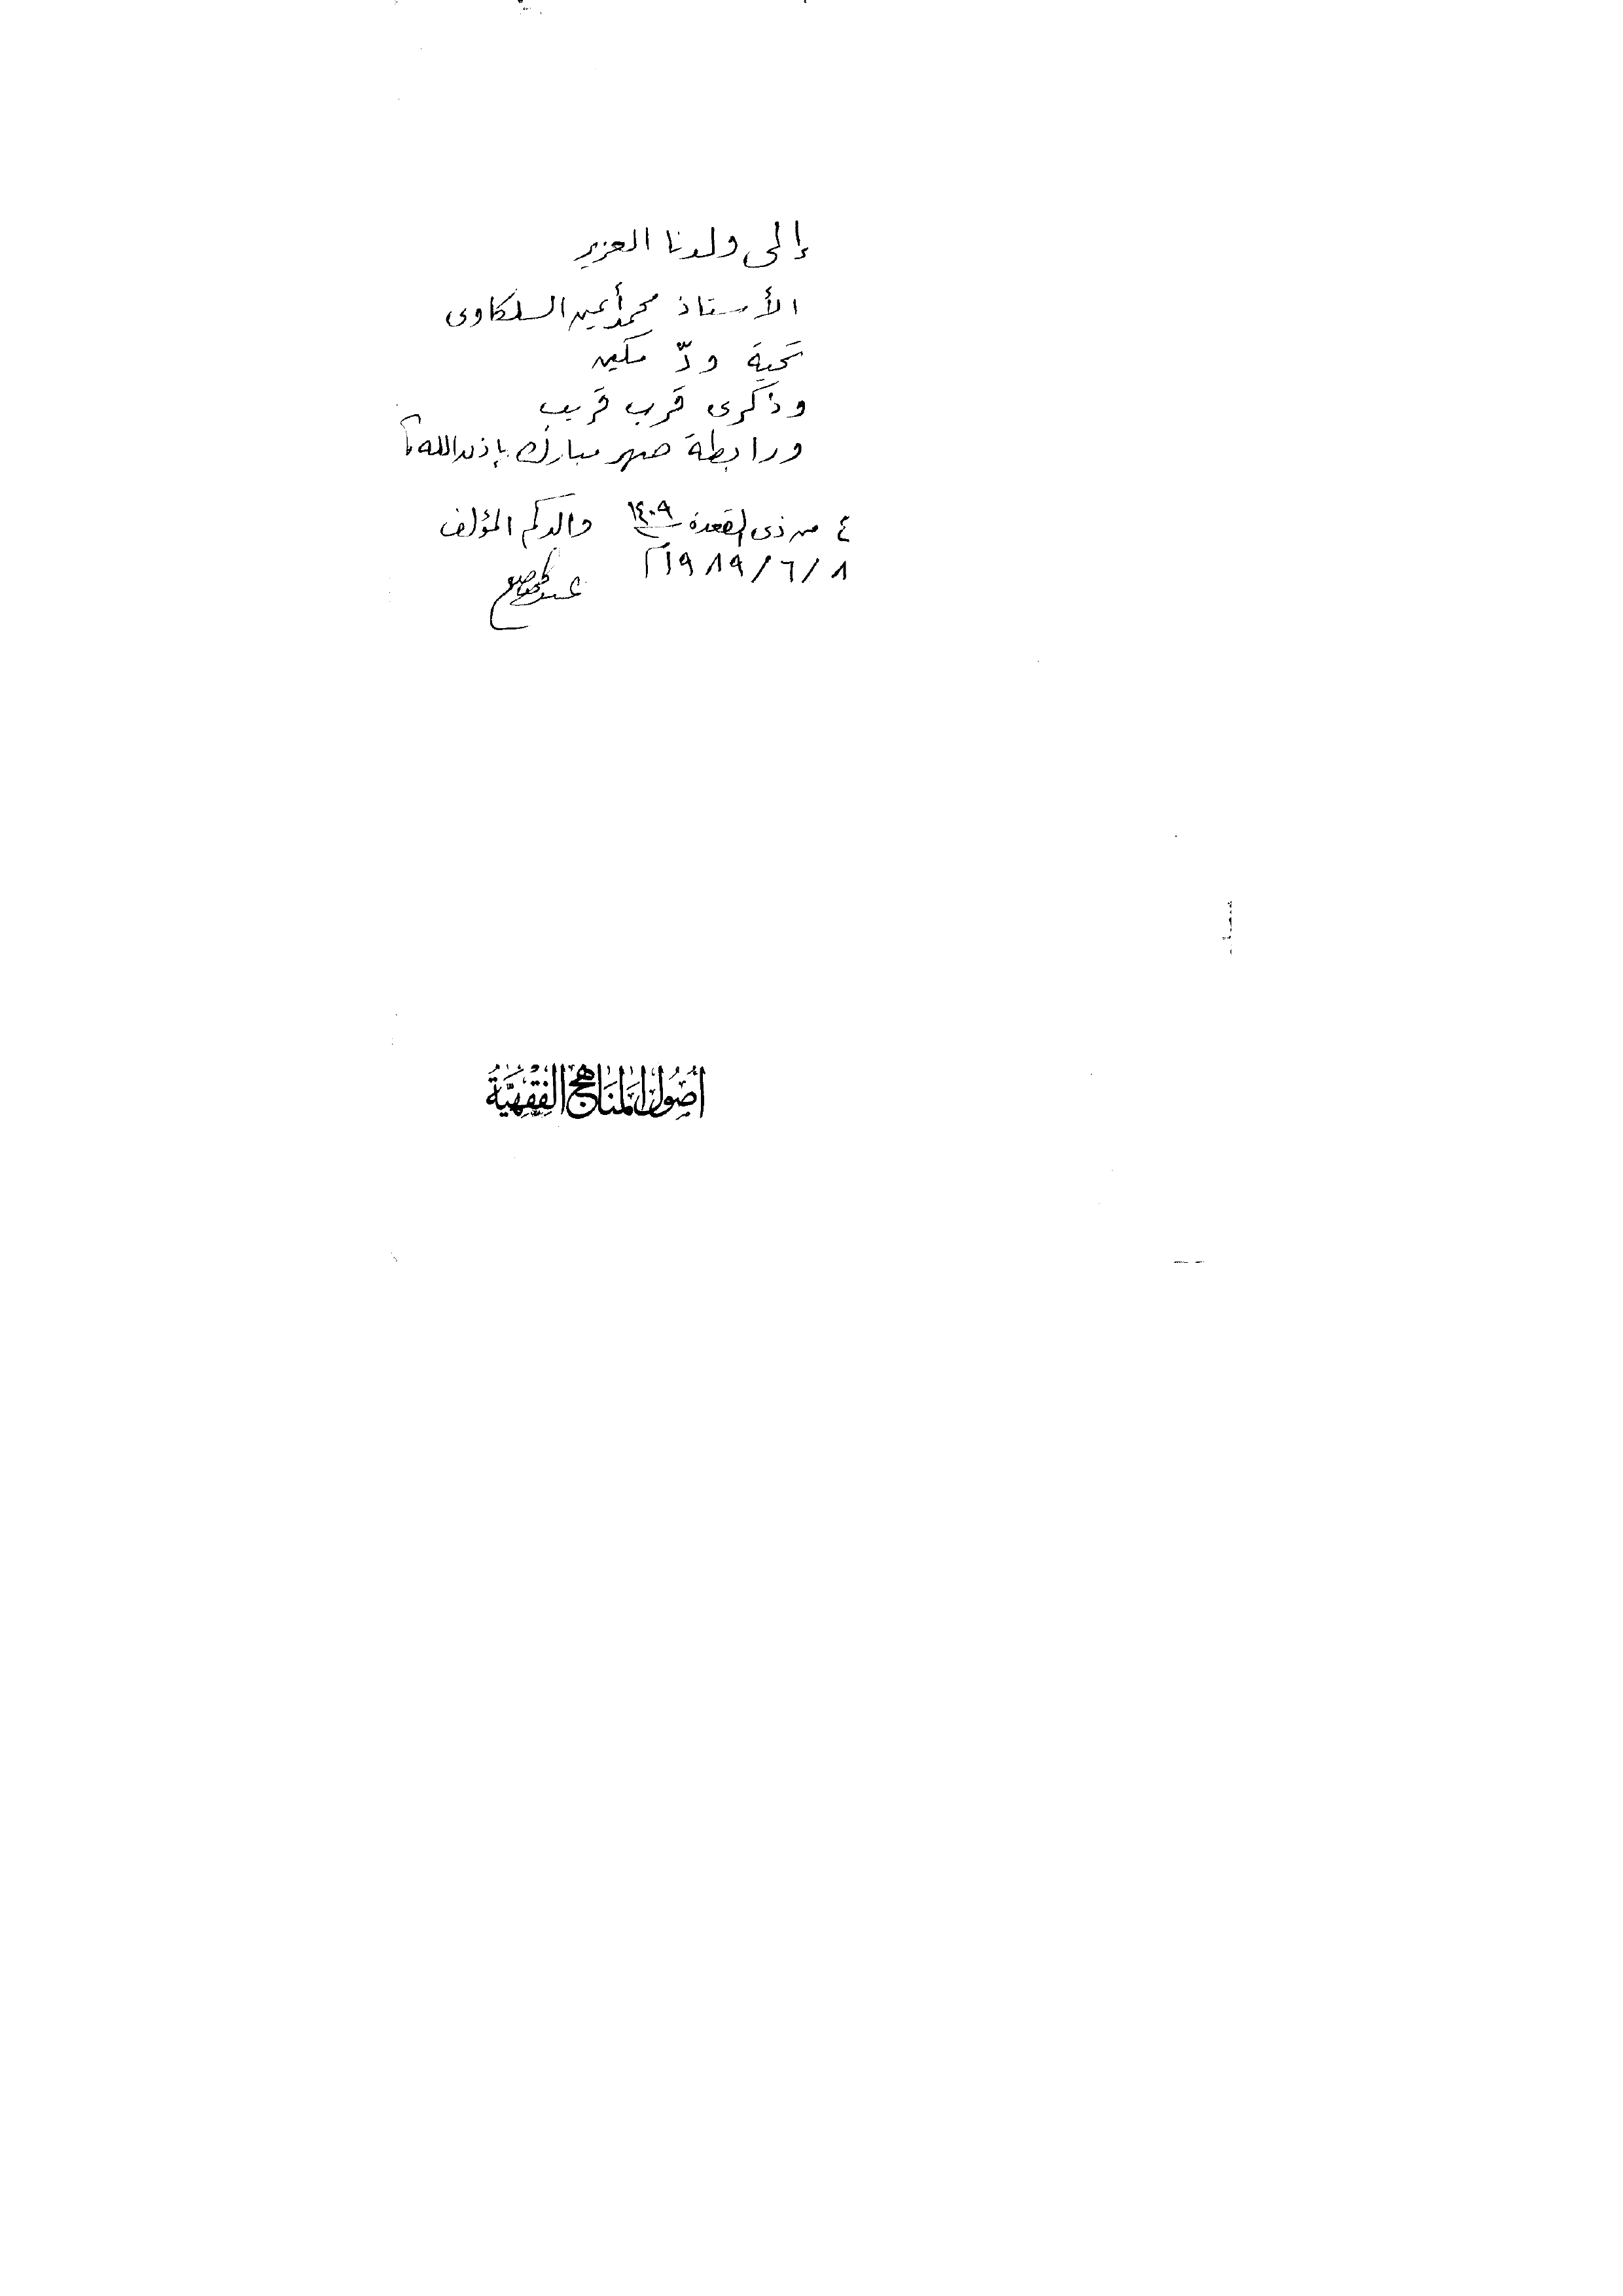 إلى ولدنا العزيز
الأستاذ محمد أيمن السلكاوى
تحية ودّ مكين
وذكرى قرب قريب
ورابطة صهر مبارك بإذن الله
٤ من ذى القعدة ١٤٠٩ والدكم المؤلف
٨/٦/١٩٨٩م
أُصُولُ المَنَاهِجِ الفِقْهِيَّةِ